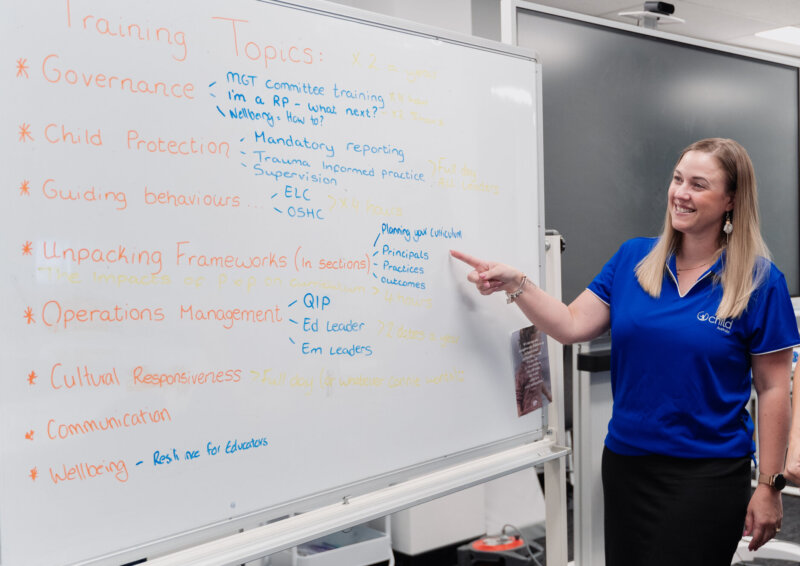 Training Topics: x 2 = year
* Governance - MGT committee training
- I'm a RP - what next?
- Wellbeing = How to?
* Child Protection - Mandatory reporting
- Trauma Informed practice
- Supervision > Full day
ALL Leaders
* Guiding behaviours ... - ELC
- OSHC > x 4 hours
* Unpacking Frameworks (In sections) - Planning your curriculum
- Principals
- Practices
- outcomes
The impacts of P of P on curriculum > 4 hours
* Operations Management - QIP
- Ed Leader
- Em Leaders
> 2 dates a year
* Cultural Responsiveness > Full day
* Communication
* Wellbeing - Resilince for Educators
child
Australia